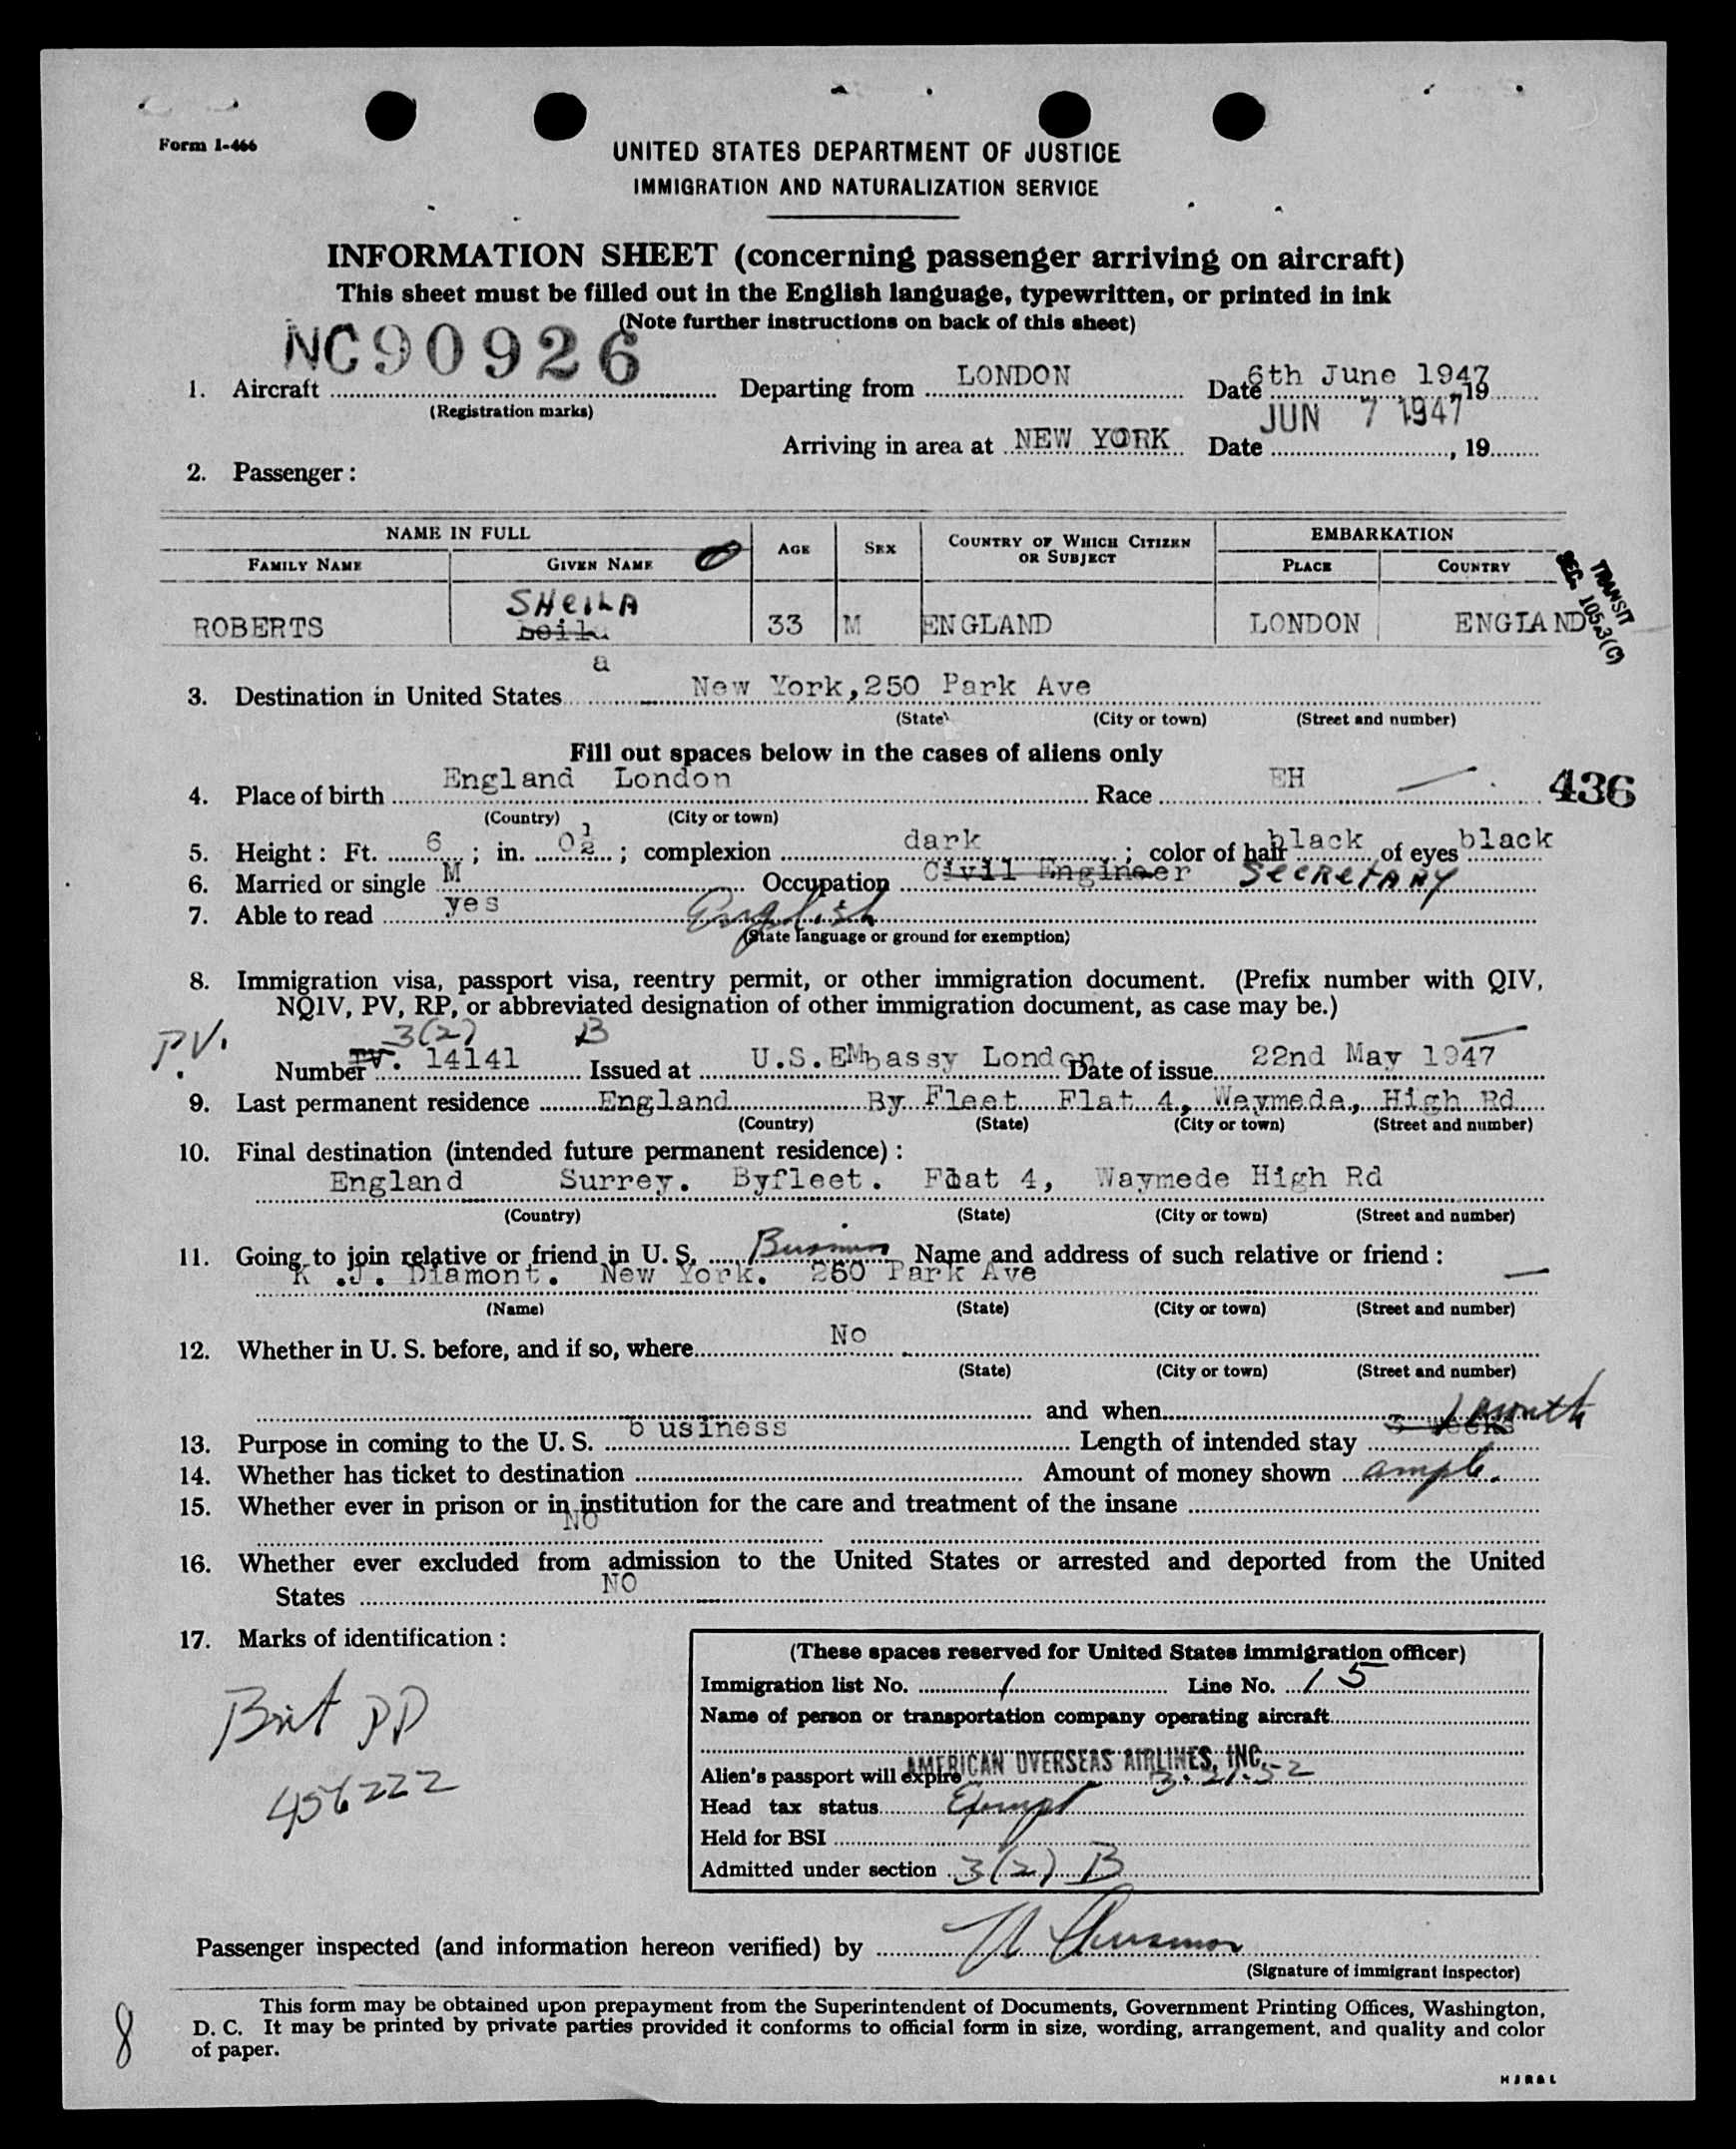 Form I-466
UNITED STATES DEPARTMENT OF JUSTICE
IMMIGRATION AND NATURALIZATION SERVICE
INFORMATION SHEET (concerning passenger arriving on aircraft)
This sheet must be filled out in the English language, typewritten, or printed in ink
(Note further instructions on back of this sheet)
NC90926
1. Aircraft Departing from LONDON Date 6th June 1947, 19
(Registration marks)
JUN 7 1947
Arriving in area at NEW YORK Date , 19
2. Passenger:
NAME IN FULL AGE SEX COUNTRY OF WHICH CITIZEN OR SUBJECT EMBARKATION
FAMILY NAME GIVEN NAME PLACE COUNTRY
TRANSIT
SEC. 105.3(C)
ROBERTS SHEILA 33 M ENGLAND LONDON ENGLAND
a
3. Destination in United States New York, 250 Park Ave
(State) (City or town) (Street and number)
Fill out spaces below in the cases of aliens only
4. Place of birth England London Race EH
436
(Country) (City or town)
5. Height: Ft. 6; in. 0 1/2; complexion dark; color of hair black of eyes black
6. Married or single M Occupation Civil Engineer SECRETARY
7. Able to read yes English
(State language or ground for exemption)
8. Immigration visa, passport visa, reentry permit, or other immigration document. (Prefix number with QIV,
NQIV, PV, RP, or abbreviated designation of other immigration document, as case may be.)
PV. 3(2) B
Number PV. 14141 Issued at U.S.EMbassy London Date of issue 22nd May 1947
9. Last permanent residence England By Fleet Flat 4, Waymede, High Rd
(Country) (State) (City or town) (Street and number)
10. Final destination (intended future permanent residence):
England Surrey. Byfleet. Flat 4, Waymede High Rd
(Country) (State) (City or town) (Street and number)
11. Going to join relative or friend in U. S. Business Name and address of such relative or friend:
K .J. Diamont. New York. 250 Park Ave
(Name) (State) (City or town) (Street and number)
12. Whether in U. S. before, and if so, where No
(State) (City or town) (Street and number)
and when
13. Purpose in coming to the U. S. business Length of intended stay 3 weeks 1 month
14. Whether has ticket to destination Amount of money shown ample.
15. Whether ever in prison or in institution for the care and treatment of the insane
NO
16. Whether ever excluded from admission to the United States or arrested and deported from the United
States NO
17. Marks of identification:
Brit PP
456222
(These spaces reserved for United States immigration officer)
Immigration list No. 1 Line No. 15
Name of person or transportation company operating aircraft
AMERICAN OVERSEAS AIRLINES, INC.
Alien's passport will expire 3.21.52
Head tax status Exempt
Held for BSI
Admitted under section 3(2) B
Passenger inspected (and information hereon verified) by
(Signature of immigrant inspector)
This form may be obtained upon prepayment from the Superintendent of Documents, Government Printing Offices, Washington,
D. C. It may be printed by private parties provided it conforms to official form in size, wording, arrangement, and quality and color
of paper.
8